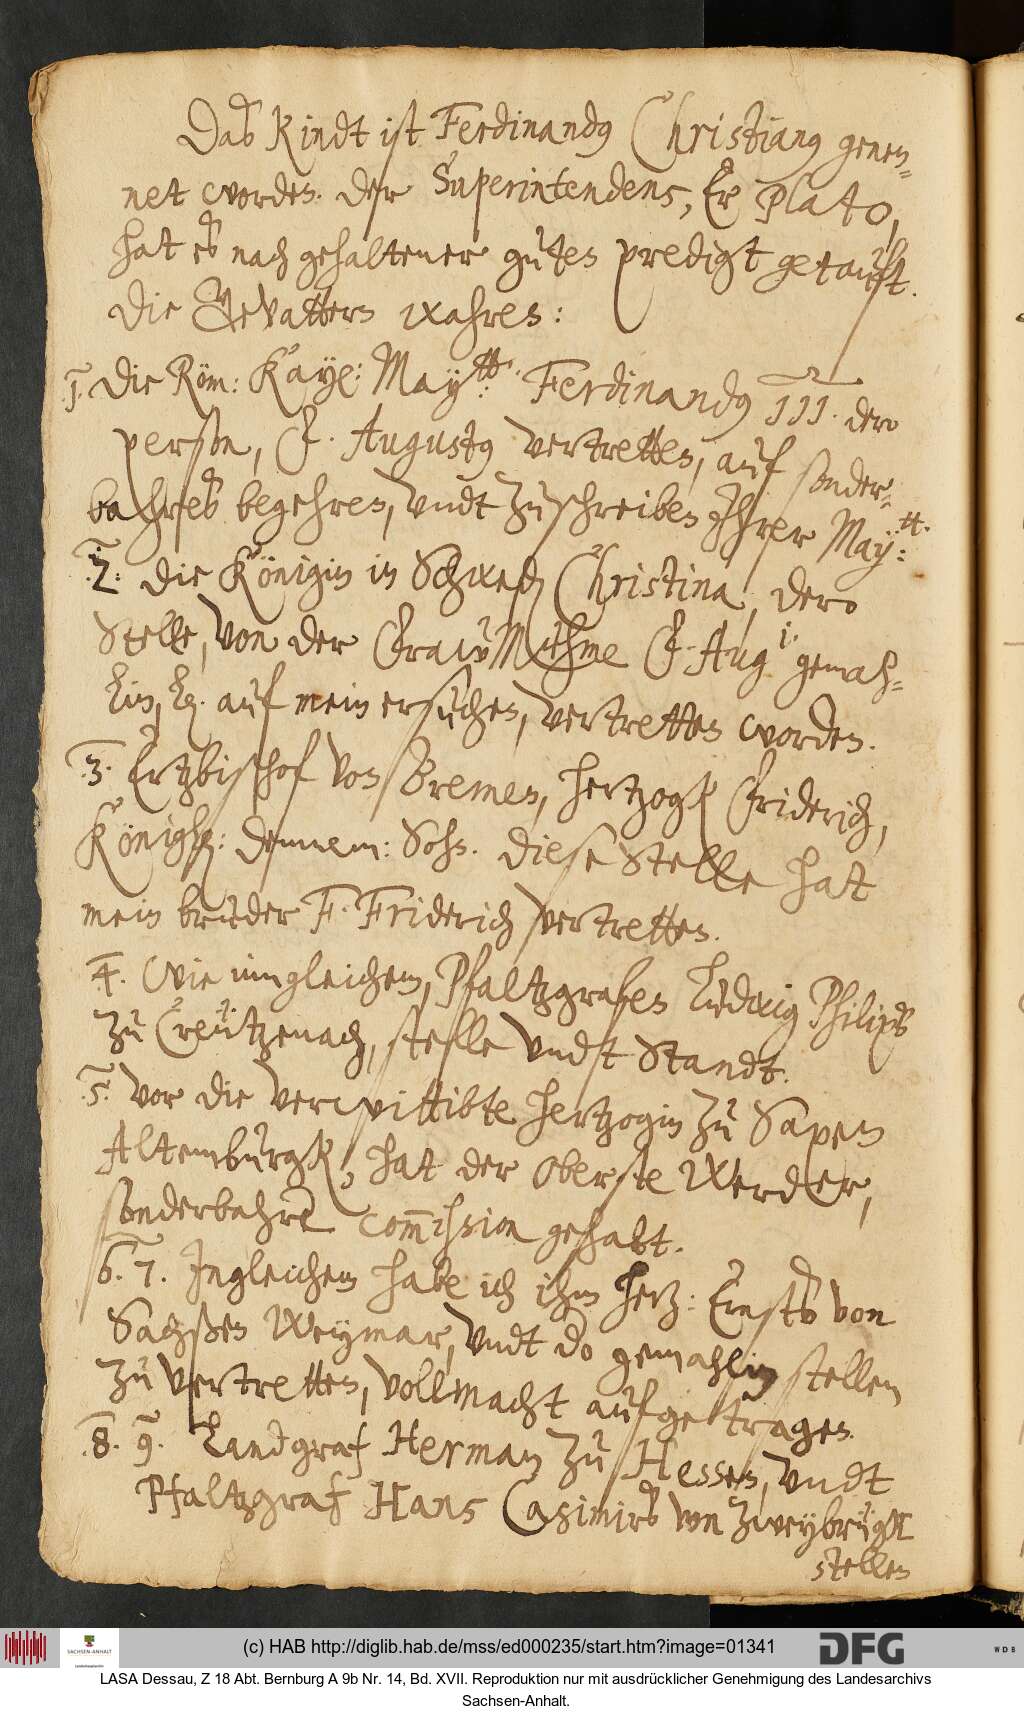 Das Kindt ist Ferdinandus Christianus genen-
net worden. der Superintendens, Er Plato,
hat es nach gehaltener guten predigt getauft.
Die Gevattern wahren:
1. Die Röm: Kayß: Maytt: Ferdinandus III. dero
person, F. Augustus vertretten, auf sonder-
bahres begehren, undt zuschreiben Ihrer Maytt:
2. die Königin in Schweden Christina, dero
Stelle, von der Fraw Muhme F. Augi: gemah-
lin, auf mein ersuchen, vertretten worden.
3. Ertzbischof von Bremen, hertzogk Friderich,
Königl: dennem: Sohn. diese Stelle hat
mein bruder F. Friderich vertretten.
4. Wie imgleichem, Pfaltzgrafen Ludwig Philips
zu Creützenach, stelle undt Standt.
5. vor die verwittibte hertzogin zu Saxen
Altemburgk, hat der Oberste Werder,
sonderbahre commission gehabt.
6. 7. Ingleichem habe ich ihm hertz: Ernsts von
Sachßen Weymar, undt do gemahlin stellen
zu vertretten, vollmacht aufgetragen.
8. 9. Landgraf Herman zu Hessen, undt
Pfaltzgraf Hans Casimirs von Zweybrügk
stellen
(c) HAB http://diglib.hab.de/mss/ed000235/start.htm?image=01341
SACHSEN-ANHALT
DFG
WDB
LASA Dessau, Z 18 Abt. Bernburg A 9b Nr. 14, Bd. XVII. Reproduktion nur mit ausdrücklicher Genehmigung des Landesarchivs
Sachsen-Anhalt.